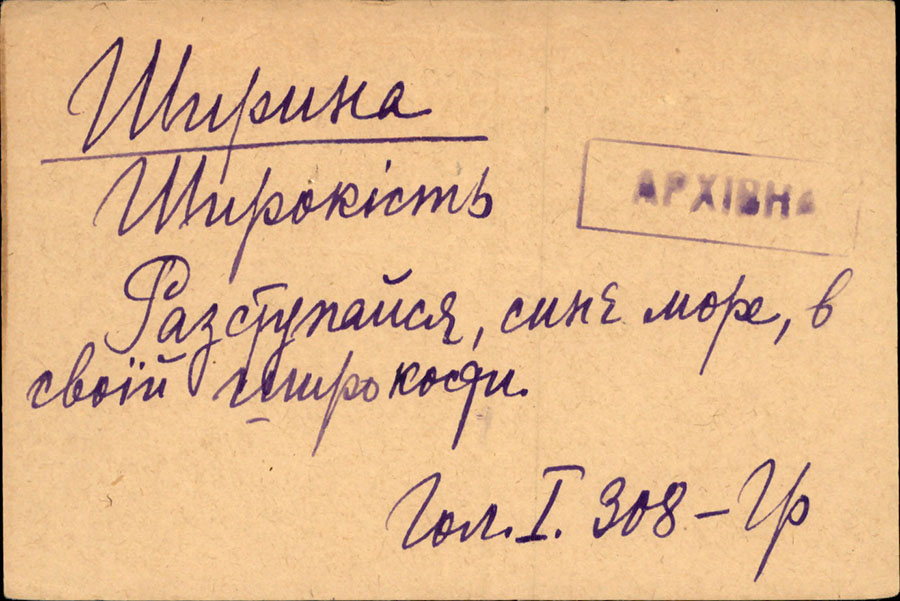 Ширина
Широкість
АРХІВНА
Разступайся, синє море, в
своїй широкости.
Гол. I. 308 – Гр